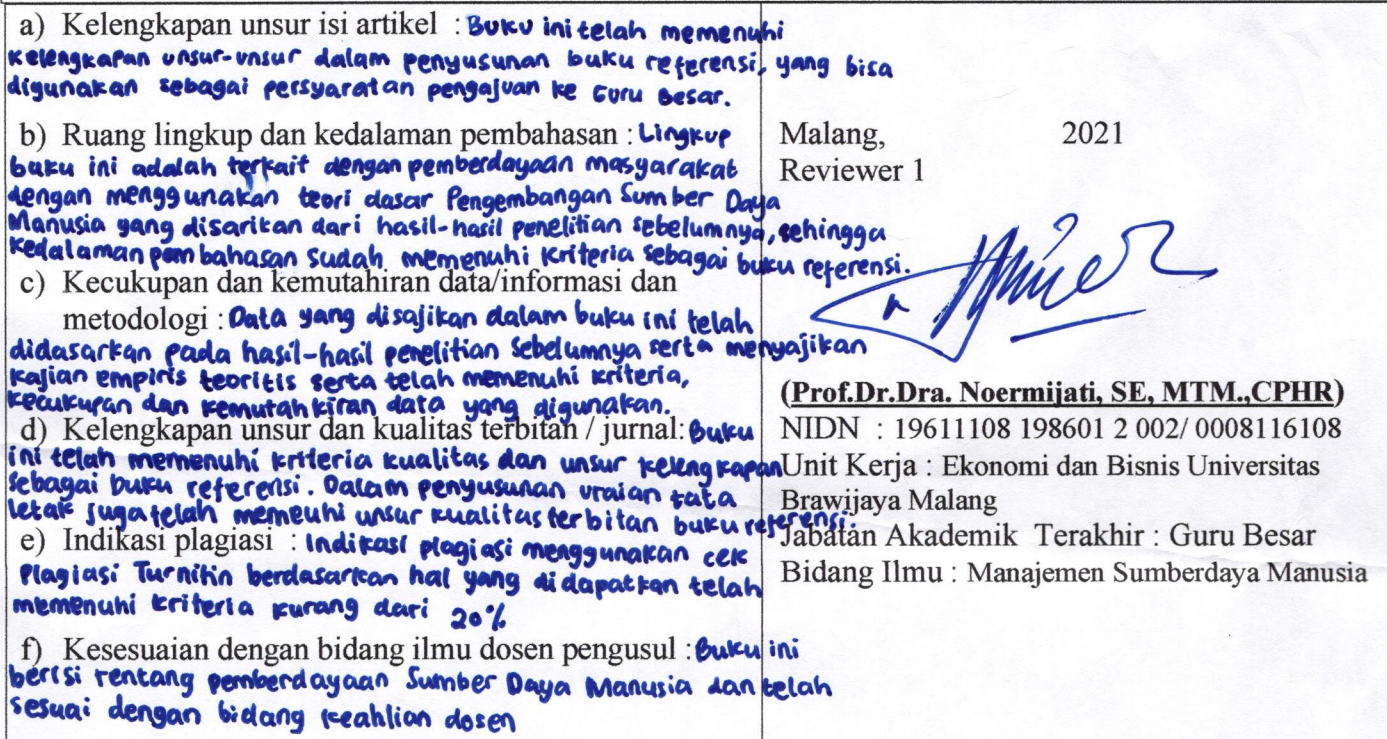 a) Kelengkapan unsur isi artikel : Buku ini telah memenuhi
kelengkapan unsur-unsur dalam penyusunan buku referensi, yang bisa
digunakan sebagai persyaratan pengajuan ke Guru Besar.
b) Ruang lingkup dan kedalaman pembahasan : Lingkup
buku ini adalah terkait dengan pemberdayaan masyarakat
dengan menggunakan teori dasar Pengembangan Sumber Daya
Manusia yang disarikan dari hasil-hasil penelitian sebelumnya, sehingga
kedalaman pembahasan sudah memenuhi kriteria sebagai buku referensi.
c) Kecukupan dan kemutahiran data/informasi dan
metodologi : Data yang disajikan dalam buku ini telah
didasarkan pada hasil-hasil penelitian sebelumnya serta menyajikan
kajian empiris teoritis serta telah memenuhi kriteria,
kecukupan dan kemutahkiran data yang digunakan.
d) Kelengkapan unsur dan kualitas terbitan / jurnal: Buku
ini telah memenuhi kriteria kualitas dan unsur kelengkapan
sebagai buku referensi. Dalam penyusunan uraian tata
letak juga telah memeuhi unsur kualitas terbitan buku referensi.
e) Indikasi plagiasi : Indikasi plagiasi menggunakan cek
Plagiasi Turnitin berdasarkan hal yang didapatkan telah
memenuhi kriteria kurang dari 20%
f) Kesesuaian dengan bidang ilmu dosen pengusul : Buku ini
berisi tentang pemberdayaan Sumber Daya Manusia dan telah
sesuai dengan bidang keahlian dosen
Malang, 2021
Reviewer 1
(Prof.Dr.Dra. Noermijati, SE, MTM.,CPHR)
NIDN : 19611108 198601 2 002/ 0008116108
Unit Kerja : Ekonomi dan Bisnis Universitas
Brawijaya Malang
Jabatan Akademik Terakhir : Guru Besar
Bidang Ilmu : Manajemen Sumberdaya Manusia